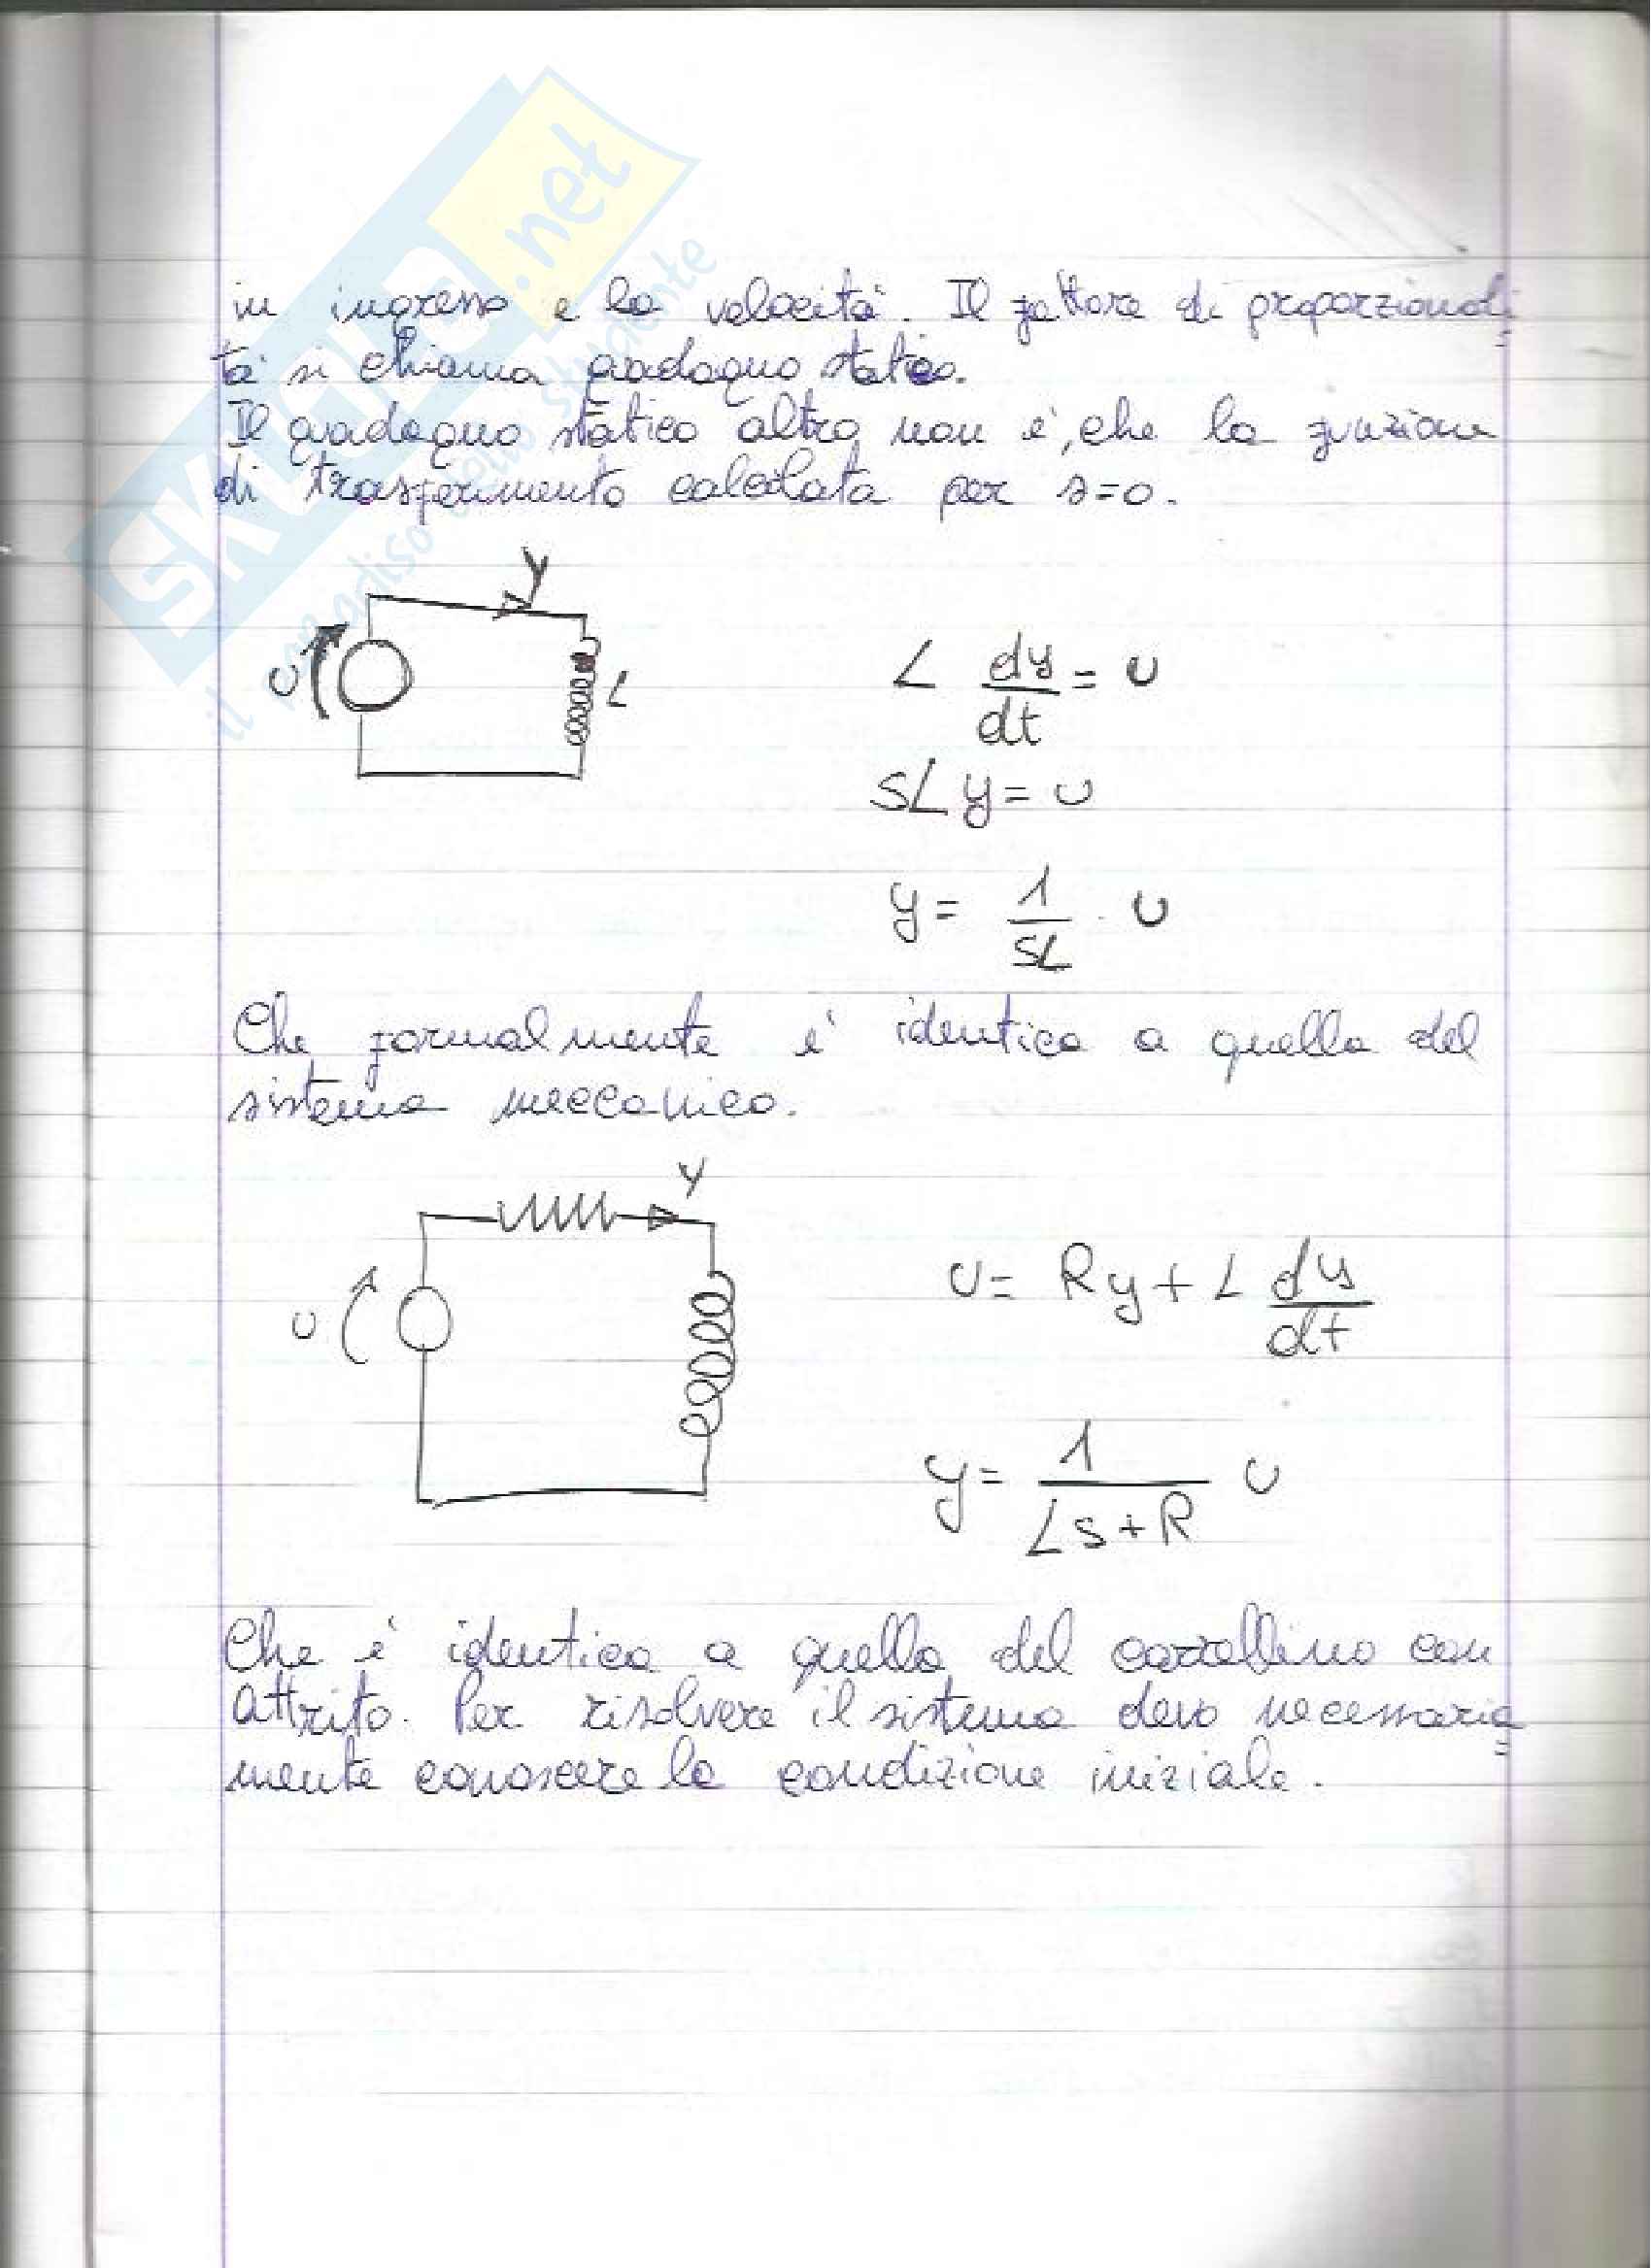 SKUOLA.net
il paradiso dello studente
in ingresso e la velocità. Il fattore di proporzionali
tà si chiama guadagno statico.
Il guadagno statico altro non è, che la funzione
di trasferimento calcolata per s=0.
y
U
L
L dy/dt = U
sLy = U
y = 1/SL · U
Che formalmente è identica a quella del
sistema meccanico.
y
U
U = Ry + L dy/dt
y = 1/(Ls+R) U
Che è identica a quella del carrellino con
attrito. Per risolvere il sistema devo necessaria
mente conoscere la condizione iniziale.